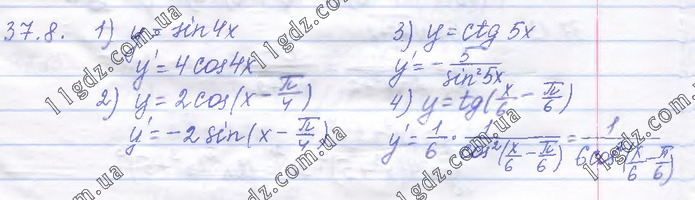 37.8. 1) y = sin 4x
y' = 4 cos 4x
2) y = 2 cos(x - π/4)
y' = -2 sin(x - π/4)
3) y = ctg 5x
y' = - 5/sin²5x
4) y = tg(x/6 - π/6)
y' = 1/6 · 1/cos²(x/6 - π/6) = 1/6cos²(x/6 - π/6)
11gdz.com.ua
11gdz.com.ua
11gdz.com.ua
11gdz.com.ua